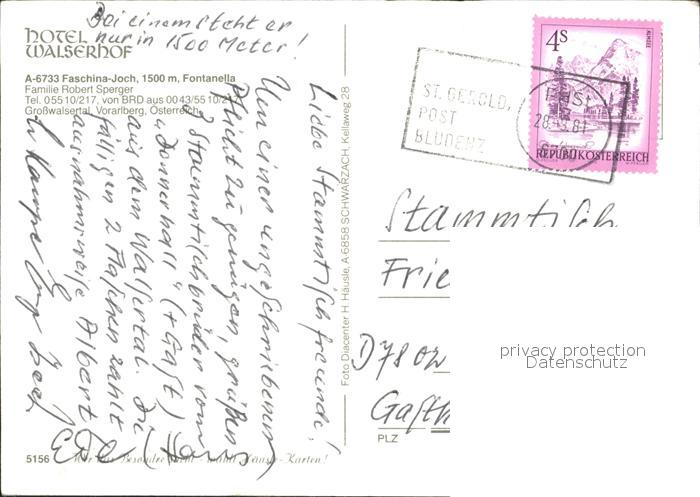 Bei einem steht er
nur in 1500 Meter!
HOTEL
WALSERHOF
A-6733 Faschina-Joch, 1500 m, Fontanella
Familie Robert Sperger
Tel. 05510/217, von BRD aus 0043/5510/2
Großwalsertal, Vorarlberg, Österreich
Liebe Stammtischfreunde!
Um einer ungeschriebenen
Pflicht zu genügen, grüßen
2 Stammtischbrüder vom
"Donnerhall" (+ Gast)
aus dem Walsertal. Die
fälligen 2 Flaschen zahlt
ausnahmsweise Albert
5156
Foto Diacenter H. Häusle, A-6858 SCHWARZACH, Kellaweg 28
ST. GEROLD,
POST
BLUDENZ
4S
ALMSEE
REPUBLIK ÖSTERREICH
Stammtisch
Frie
D 7802
Gasth
PLZ
privacy protection
Datenschutz